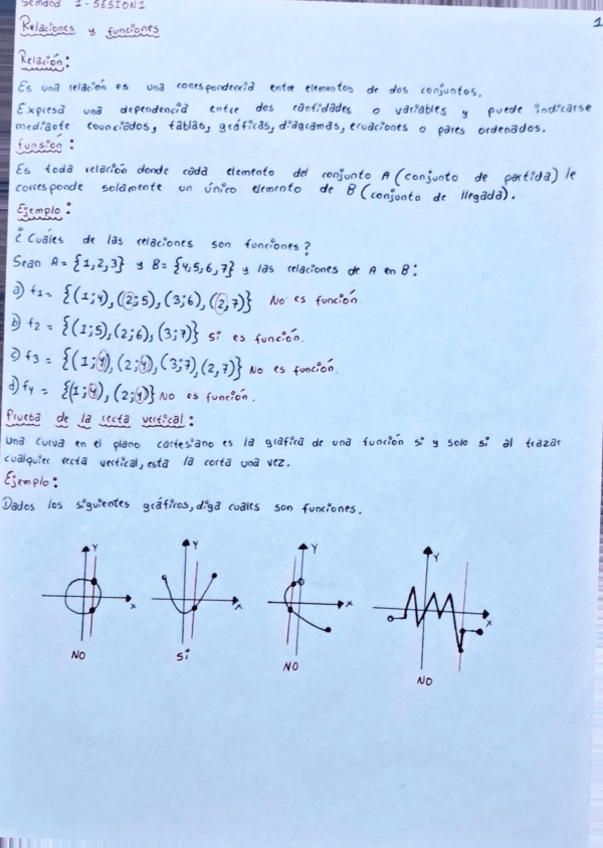 Semana 1 - SESION 1
1
Relaciones y funciones
Relación:
Es una relación es una correspondencia entre elementos de dos conjuntos.
Expresa una dependencia entre dos cantidades o variables y puede indicarse
mediante enunciados, tablas, gráficas, diagramas, ecuaciones o pares ordenados.
funsión:
Es toda relación donde cada elemento del conjunto A (conjunto de partida) le
corresponde solamente un único elemento de B (conjunto de llegada).
Ejemplo:
¿Cuáles de las relaciones son funciones?
Sean A = {1,2,3} y B = {4,5,6,7} y las relaciones de A en B:
a) f1 = {(1;4), (2;5), (3;6), (2,7)} No es función.
b) f2 = {(1;5), (2;6), (3;7)} Si es función.
c) f3 = {(1;4), (2;4), (3;7), (2,7)} No es función.
d) f4 = {(1;4), (2;4)} No es función.
Prueba de la recta vertical:
Una curva en el plano cartesiano es la gráfica de una función si y solo si al trazar
cualquier recta vertical, esta la corta una vez.
Ejemplo:
Dados los siguientes gráficos, diga cuales son funciones.
Y Y Y Y
X X X X
NO Si NO NO